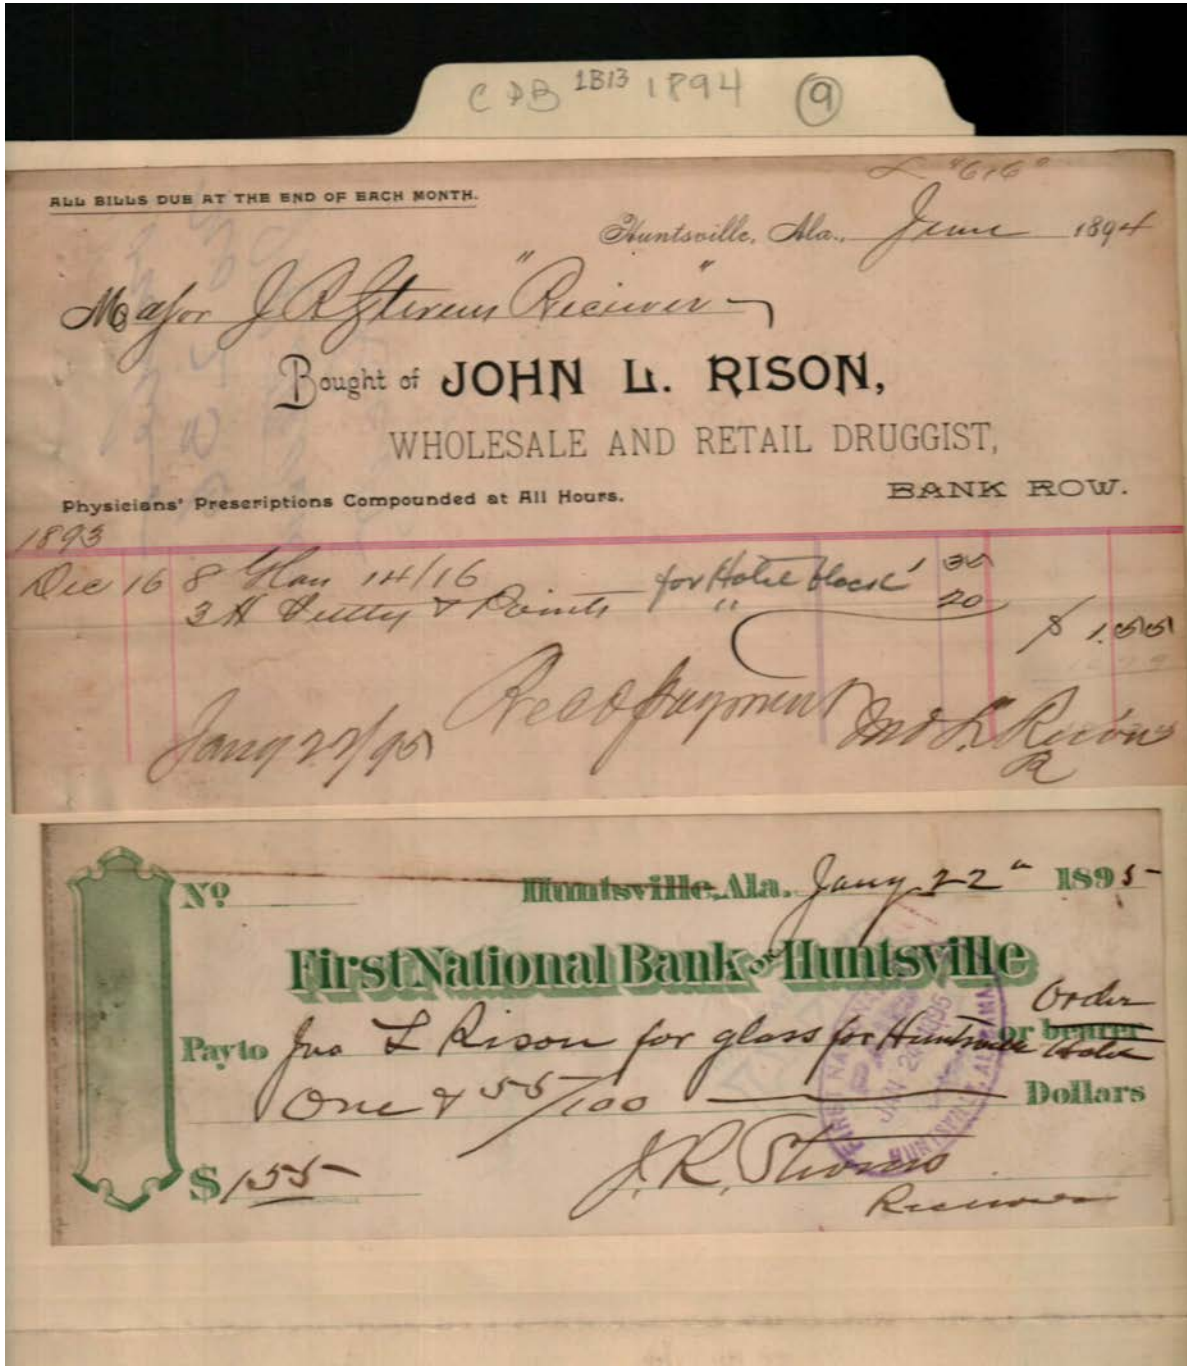 CDB 1B13 1894 9
L "616"
ALL BILLS DUE AT THE END OF EACH MONTH.
Huntsville, Ala., June 1894
Major J R Stevens "Reciever"
Bought of JOHN L. RISON,
WHOLESALE AND RETAIL DRUGGIST,
Physicians' Prescriptions Compounded at All Hours. BANK ROW.
1893
Dec 16 8 Glass 14/16 for Hotel block 1 35
3 # Putty & Points " 20
$ 1.55
Recd payment
Jany 22/95 Jno L Rison
R
No Huntsville, Ala. Jany 22" 1895
First National Bank OF Huntsville
Order
Pay to Jno L Rison for glass for Huntsville Hotel or bearer
One & 55/100 Dollars
FIRST NATIONAL JAN 24 1895 HUNTSVILLE, ALABAMA
$ 1.55 J. R. Stevens
Receiver